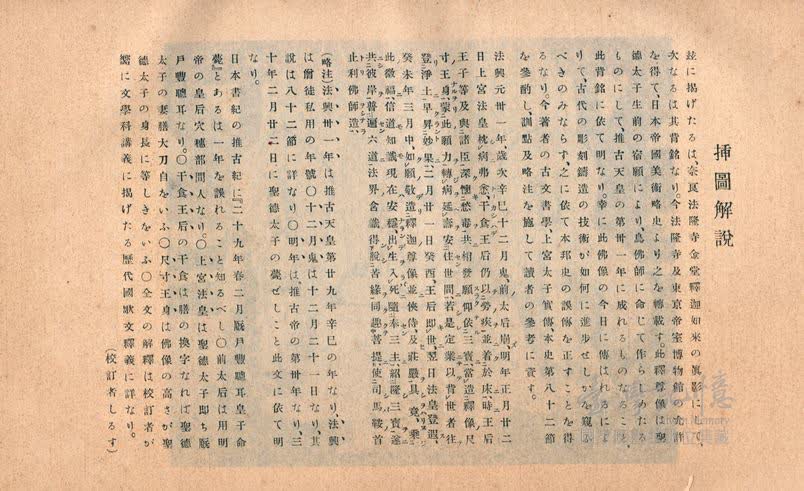 挿圖解說
玆に揭げたるは、奈良法隆寺金堂釋迦如來の眞影にして、
次なるは其背銘なり。今法隆寺及東京帝室博物館の允許
を得て、日本帝國美術略史より之を轉載す。此釋尊像は聖
德太子生前の宿願により、鳥佛師に命じて作らしめたる
ものにして、推古天皇の第卅一年に成れるものなること、
此背銘に依て明なり。幸に此佛像の今日に傳はれるによ
りて、古代の彫刻鑄造の技術が如何に進步せしかを窺ふ
べきのみならず、之に依て本邦史の誤傳を正すことを得
るなり。今著者の古文書學、上宮太子實傳、本史第八十二節
を參酌し、訓點及略注を施して讀者の參考に資す。
法興元卅一年、歲次辛巳十二月鬼、前太后崩。明年正月廿二
日上宮法皇枕病弗悆。干食王后仍以勞疾、並着於床。時王后
王子等、及與諸臣、深懷愁毒、共相發願。仰依三寶、當造釋像尺
寸王身。蒙此願力、轉病延壽、安住世間。若是定業以背世者、往
登淨土、早昇妙果。二月廿一日癸酉王后即世。翌日法皇登遐。
癸未年三月中、如願敬造釋迦尊像並俠侍、及莊嚴具竟。乘
此微福、信道知識、現在安穩、出生入死、隨奉三主、紹隆三寶、遂
共彼岸、普遍六道、法界含識、得脫苦緣、同趣菩提。使司馬鞍首
止利佛師造。
(略注)法興卅一年は推古天皇第廿九年辛巳の年なり、法興
は僧徒私用の年號〇十二月鬼は十二月二十一日なり、其
說は八十二節に詳なり〇明年は、推古帝の第卅年なり、三
十年二月廿二日に聖德太子の薨ぜしこと此文に依て明
なり。
日本書紀の推古紀に『二十九年春二月厩戶豐聰耳皇子命
薨』とあるは一年を誤れること知るべし〇前太后は用明
帝の皇后穴穗部間人なり。〇上宮法皇は聖德太子即ち厩
戶豐聰耳なり。〇干食王后の干食は膳の換字なれば聖德
太子の妻膳大刀自をいふ〇尺寸王身は佛像の高さが聖
德太子の身長に等しきをいふ〇全文の解釋は校訂者が
嘗に文學科講義に揭げたる歷代國歌文釋義に詳なり。
(校訂者しるす)